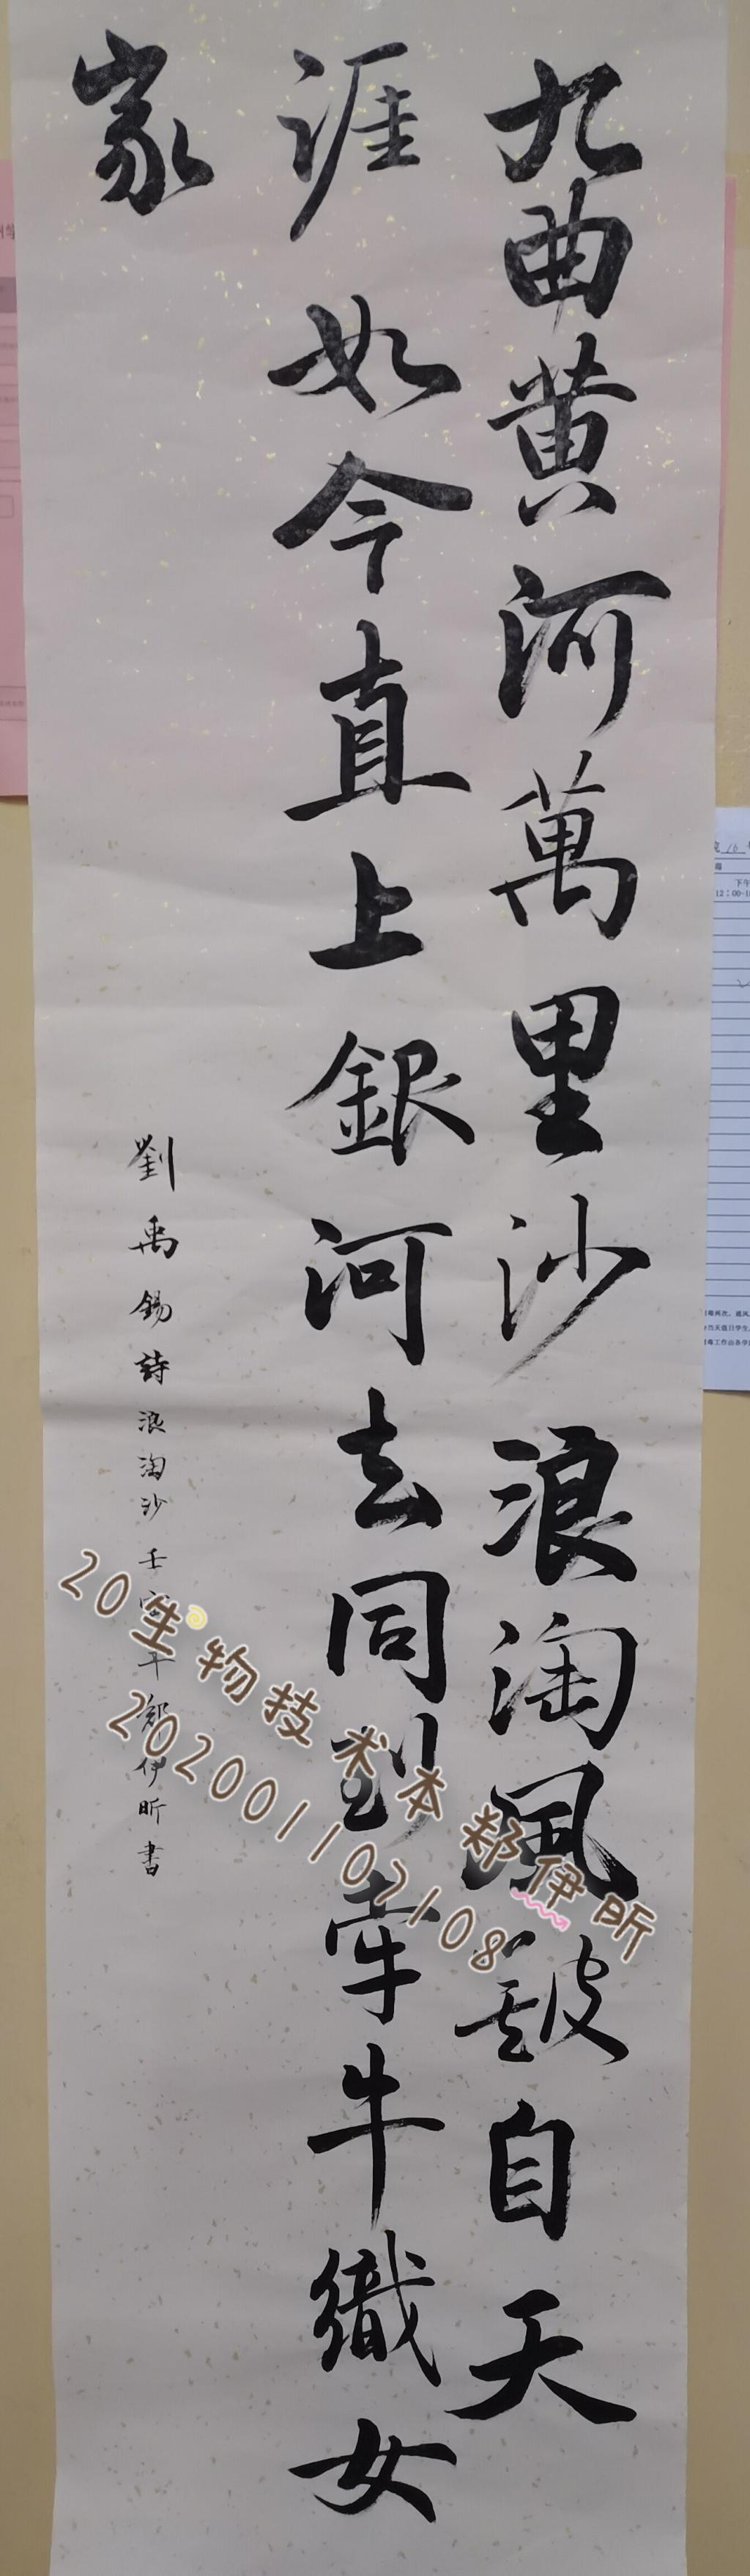 九曲黄河萬里沙浪淘風簸自天
涯如今直上銀河去同到牽牛織女
家
劉禹錫詩浪淘沙壬寅年鄭伊昕書
20生物技术本郑伊昕
202001107108